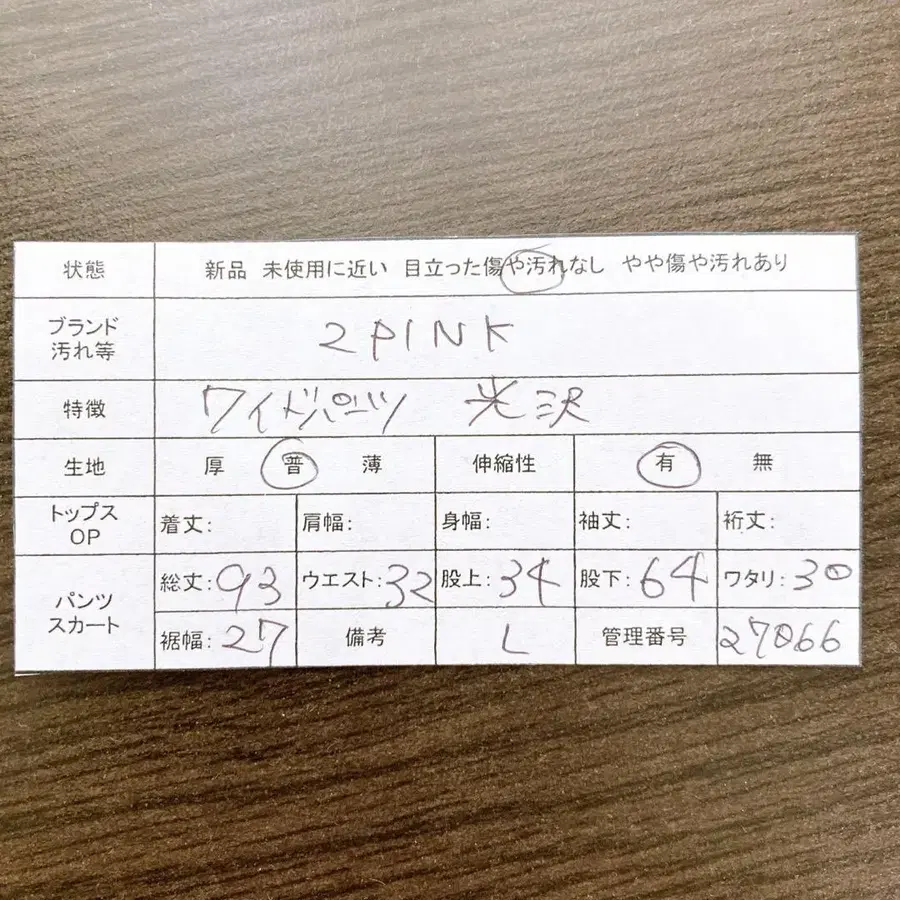 状態 新品 未使用に近い 目立った傷や汚れなし やや傷や汚れあり
ブランド 2PINK
汚れ等
特徴 ワイドパンツ 光沢
生地 厚 普 薄 伸縮性 有 無
トップス
OP
着丈: 肩幅: 身幅: 袖丈: 裄丈:
パンツ
スカート
総丈:93 ウエスト:32 股上:34 股下:64 ワタリ:30
裾幅:27 備考 L 管理番号 27066